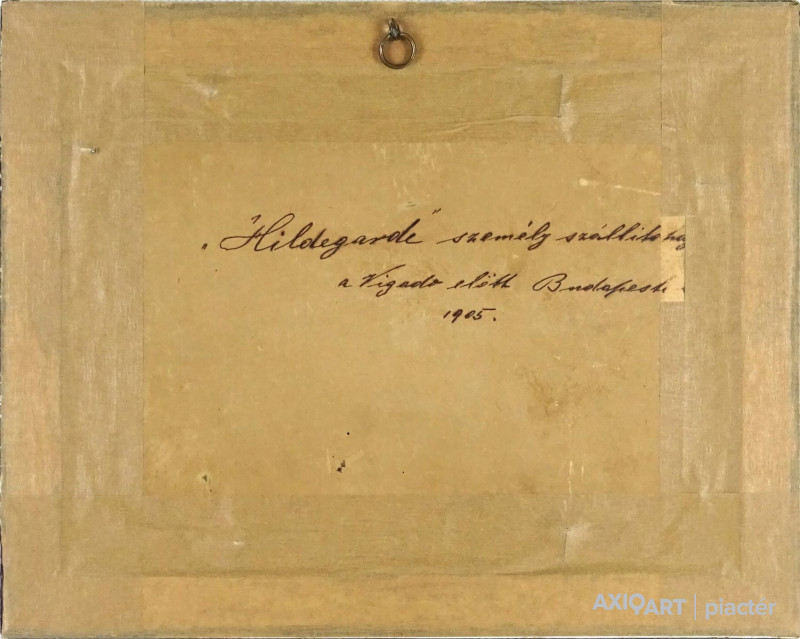 „Hildegarde” személy szállító haj
a Vigado előtt Budapest
1905.
AXIOART | piactér